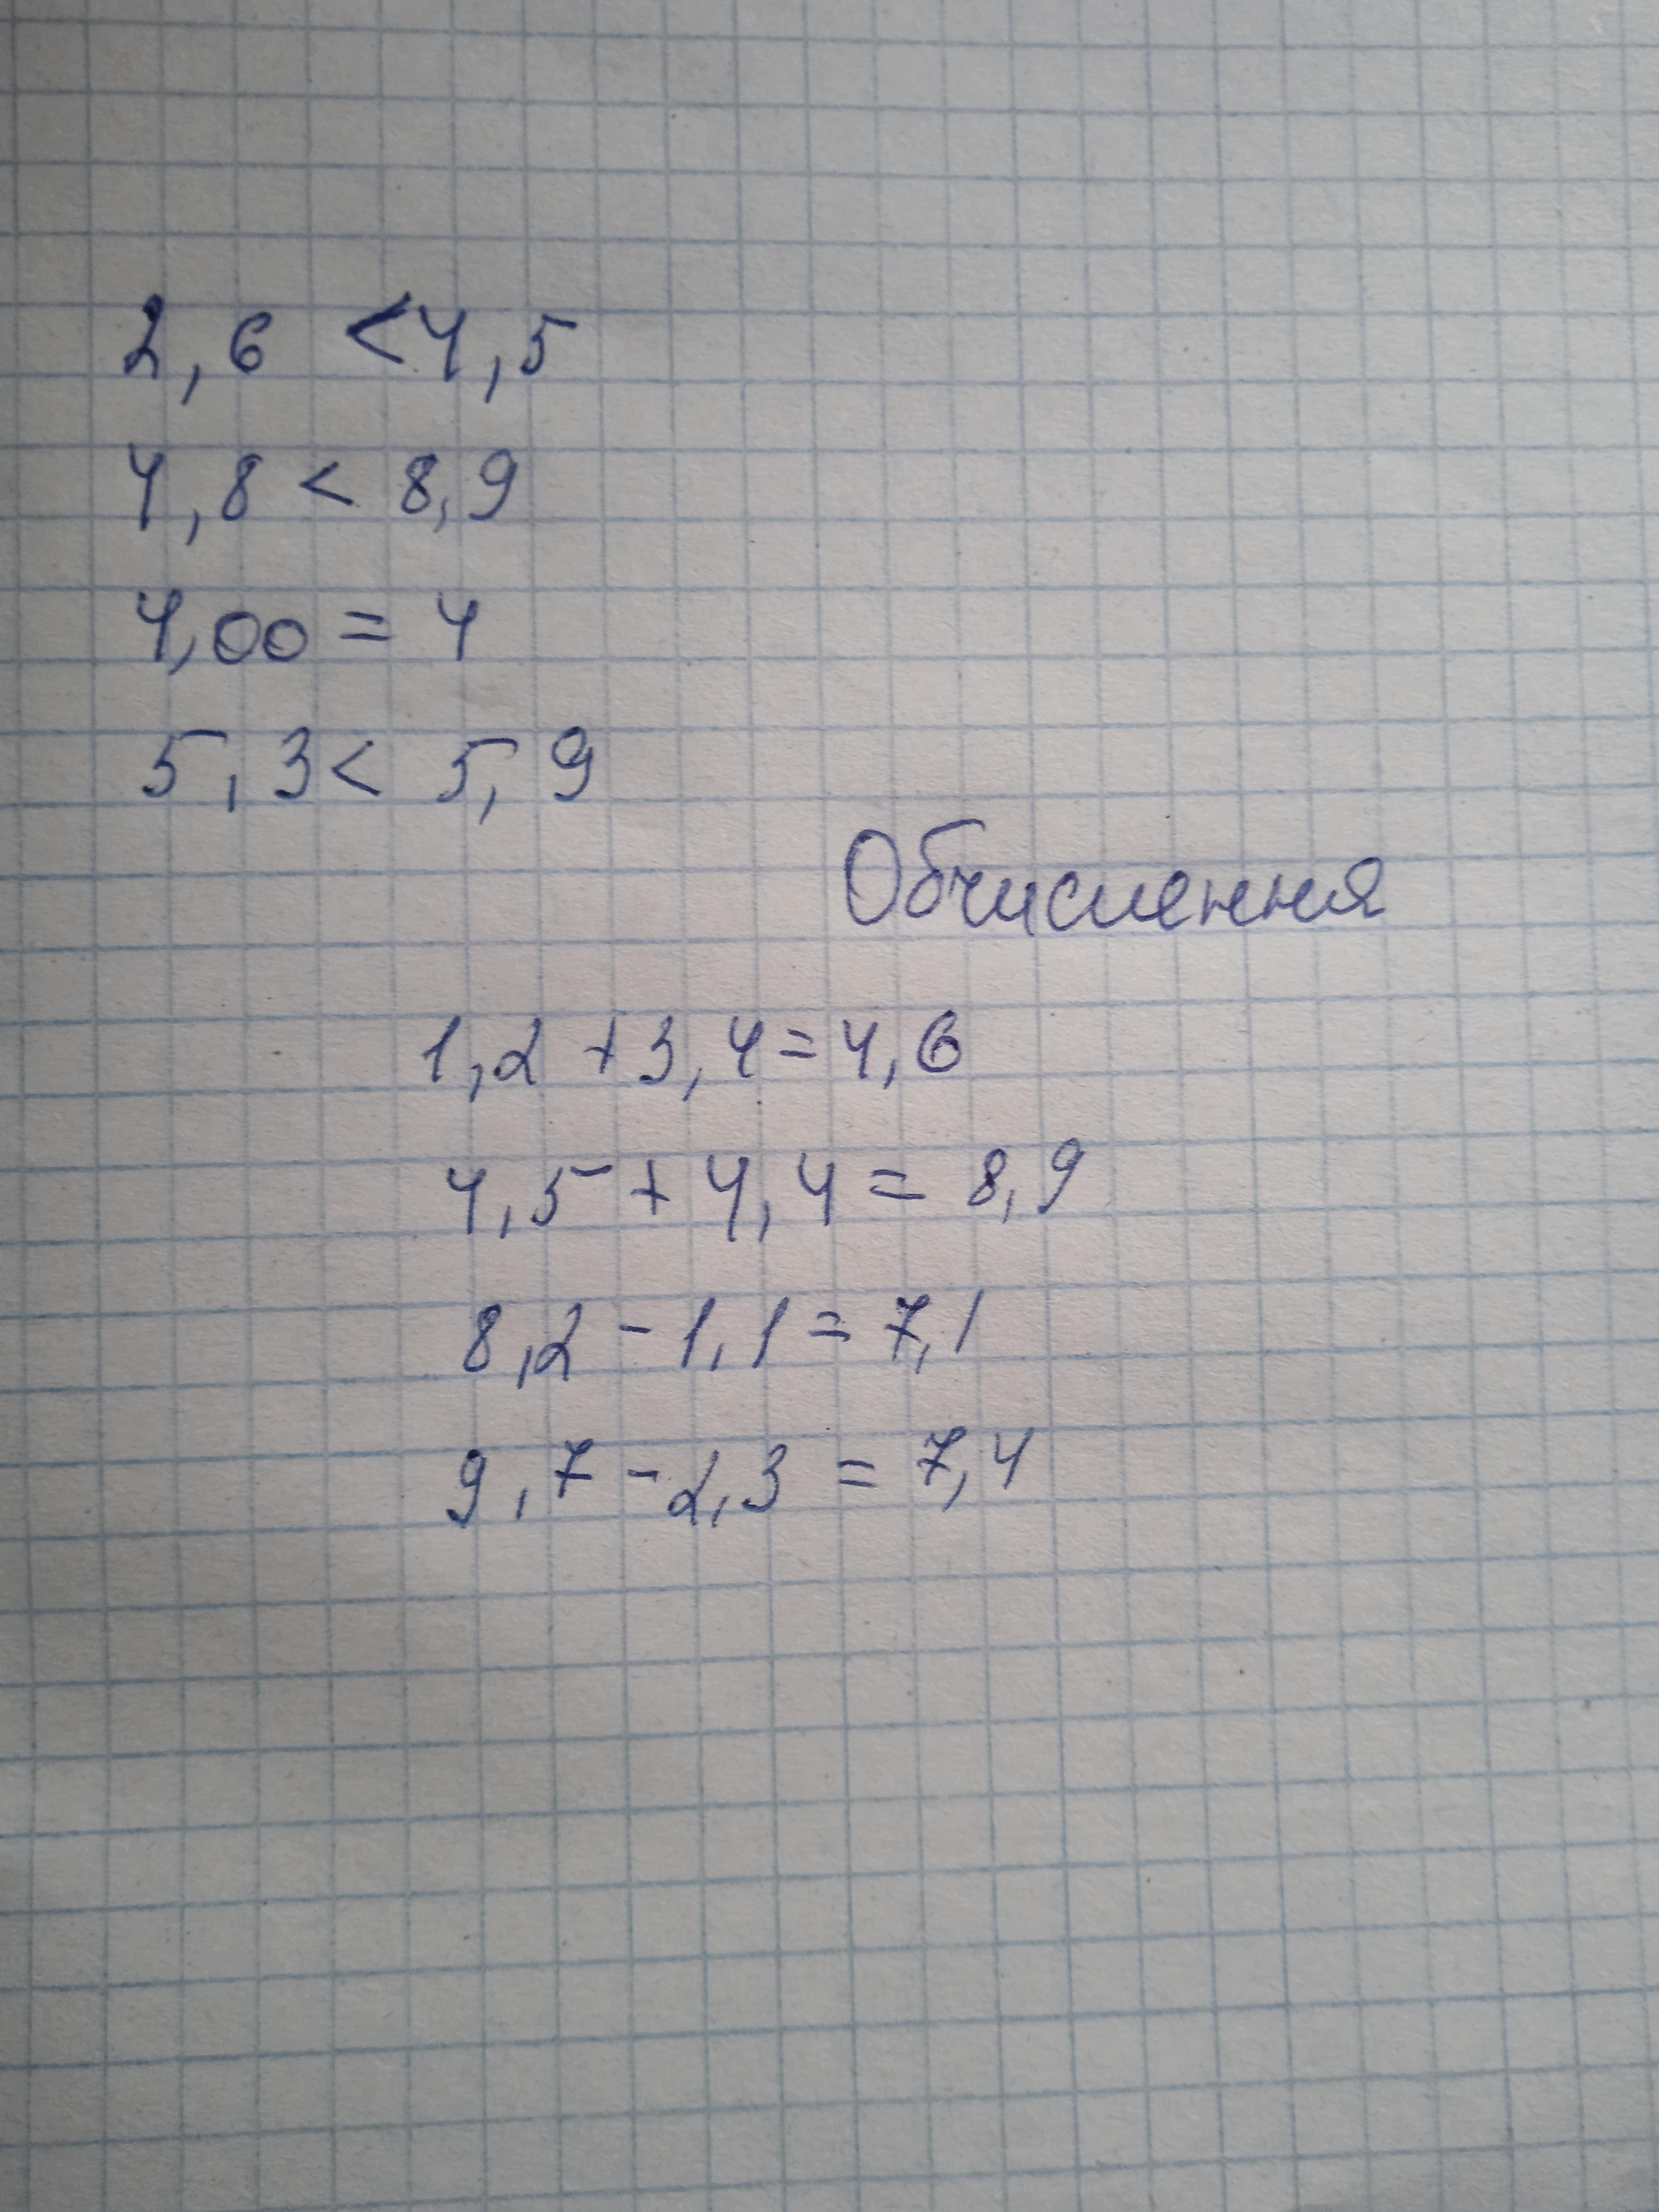 2,6 < 4,5
4,8 < 8,9
4,00 = 4
5,3 < 5,9
Обчислення
1,2 + 3,4 = 4,6
4,5 + 4,4 = 8,9
8,2 - 1,1 = 7,1
9,7 - 2,3 = 7,4